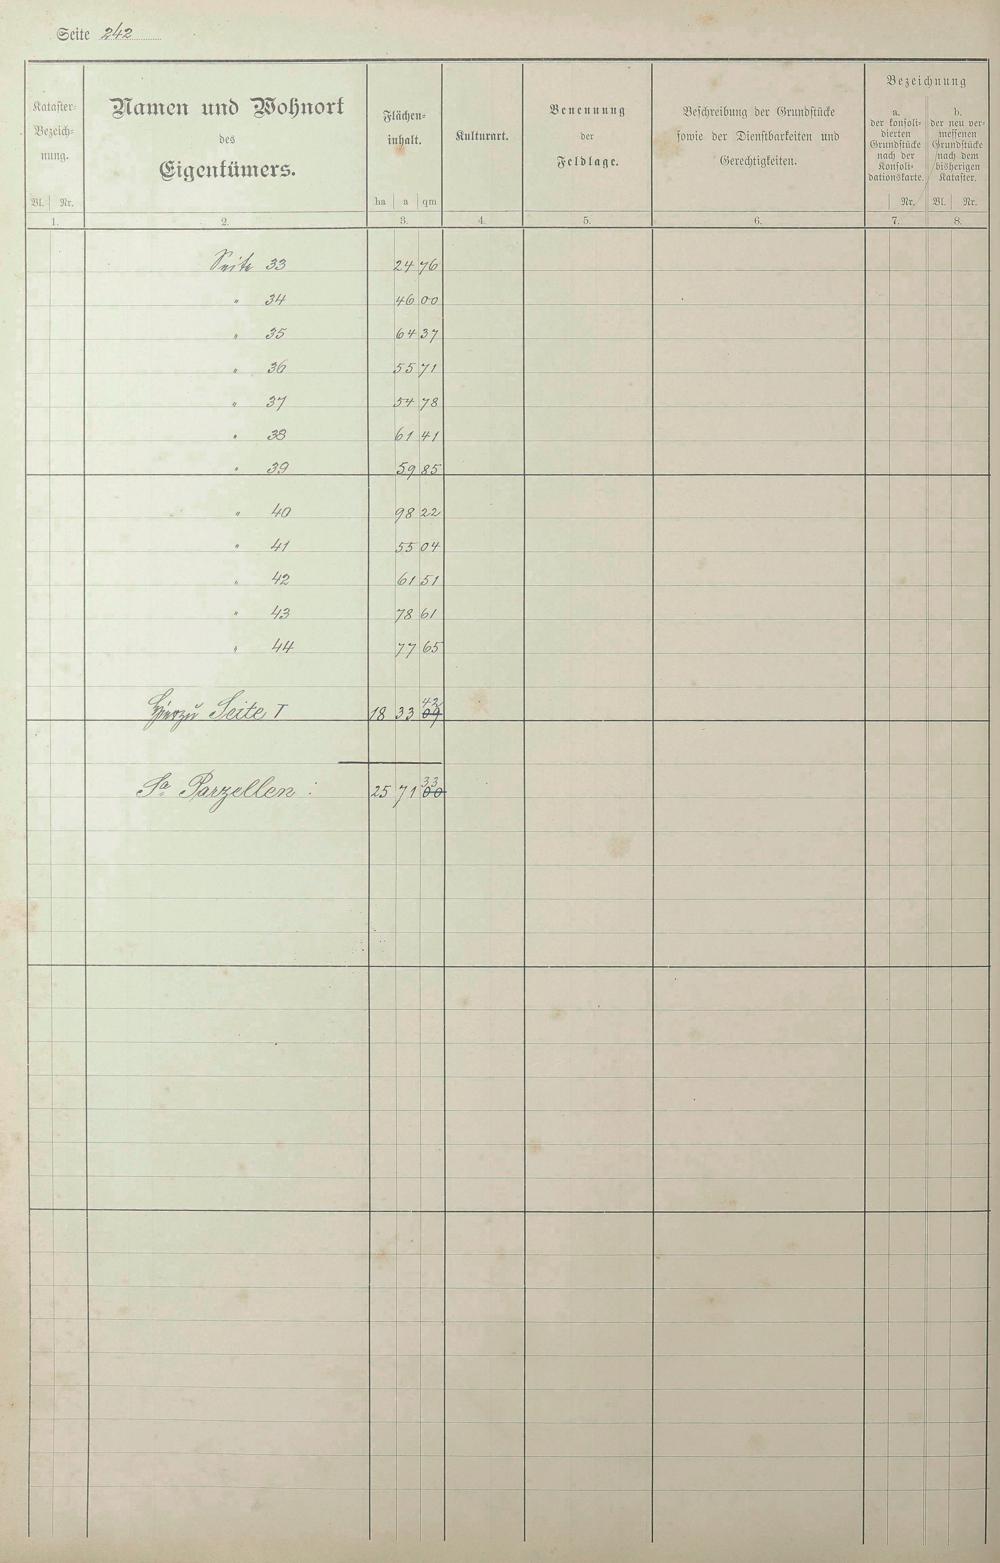 Seite 242
Kataster-
Bezeich-
nung.
Bl. Nr.
1.
Namen und Wohnort
des
Eigentümers.
2.
Flächen-
inhalt.
ha a qm
3.
Kulturart.
4.
Benennung
der
Feldlage.
5.
Beschreibung der Grundstücke
sowie der Dienstbarkeiten und
Gerechtigkeiten.
6.
Bezeichnung
a.
der konsoli-
dierten
Grundstücke
nach der
Konsoli-
dationskarte.
Nr.
7.
b.
der neu ver-
messenen
Grundstücke
nach dem
bisherigen
Kataster.
Bl. Nr.
8.
Seite 33 24 76
" 34 46 00
" 35 64 37
" 36 55 71
" 37 54 78
" 38 61 41
" 39 59 85
" 40 98 22
" 41 55 04
" 42 61 51
" 43 78 61
" 44 77 65
42
Hierzu Seite I 18 33 09
33
Sa Parzellen: 25 71 00